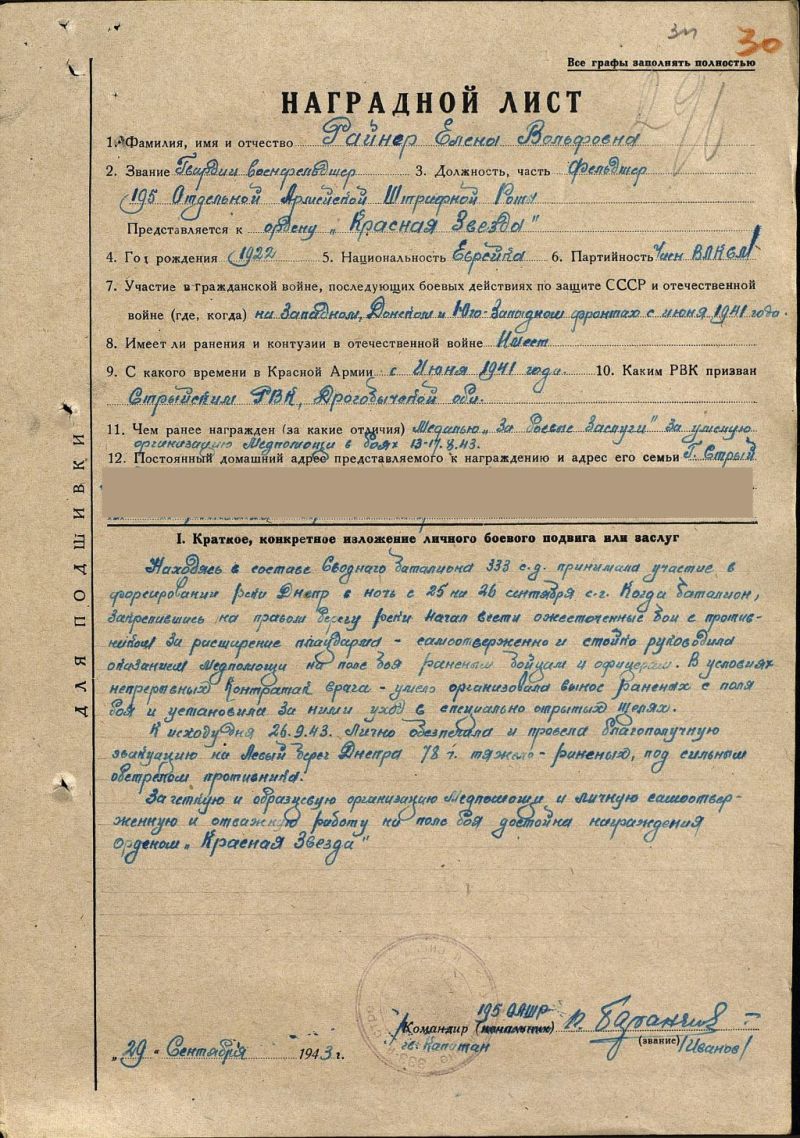 30
Все графы заполнять полностью
НАГРАДНОЙ ЛИСТ
1. Фамилия, имя и отчество Райнер Елена Вольфовна
2. Звание Гвардии военфельдшер 3. Должность, часть Фельдшер
195 Отдельной Армейской Штрафной Роты
Представляется к ордену „Красная Звезда"
4. Год рождения 1922 5. Национальность Еврейка 6. Партийность Член ВЛКСМ
7. Участие в гражданской войне, последующих боевых действиях по защите СССР и отечественной
войне (где, когда) на Западном, Донском и Юго-Западном фронтах с июня 1941 года.
8. Имеет ли ранения и контузии в отечественной войне Имеет
9. С какого времени в Красной Армии с Июня 1941 года. 10. Каким РВК призван
Стрыйским РВК, Дрогобычской обл.
11. Чем ранее награжден (за какие отличия) Медалью „За боевые заслуги" за умелую
организацию Медпомощи в боях 13-17.8.43.
12. Постоянный домашний адрес представляемого к награждению и адрес его семьи Г. Стрый
I. Краткое, конкретное изложение личного боевого подвига или заслуг
Находясь в составе Сводного батальона 333 с.д. принимала участие в
форсировании реки Днепр в ночь с 25 на 26 сентября с.г. Когда батальон,
закрепившись на правом берегу реки начал вести ожесточенные бои с против-
ником за расширение плацдарма - самоотверженно и стойко руководила
оказанием Медпомощи на поле боя раненым бойцам и офицерам. В условиях
непрерывных контратак врага - умело организовала вынос раненых с поля
боя и установила за ними уход в специально отрытых щелях.
К исходу дня 26.9.43. Лично обеспечила и провела благополучную
эвакуацию на Левый берег Днепра 78 ч. тяжело-раненых, под сильным
обстрелом противника.
За четкую и образцевую организацию Медпомощи и личную самоотвер-
женную и отважную работу на поле боя достойна награждения
Орденом „Красная Звезда"
ДЛЯ ПОДШИВКИ
195 ОАШР
Командир (начальник)
гв. Капитан
(звание) /Иванов/
„29" Сентября 1943 г.